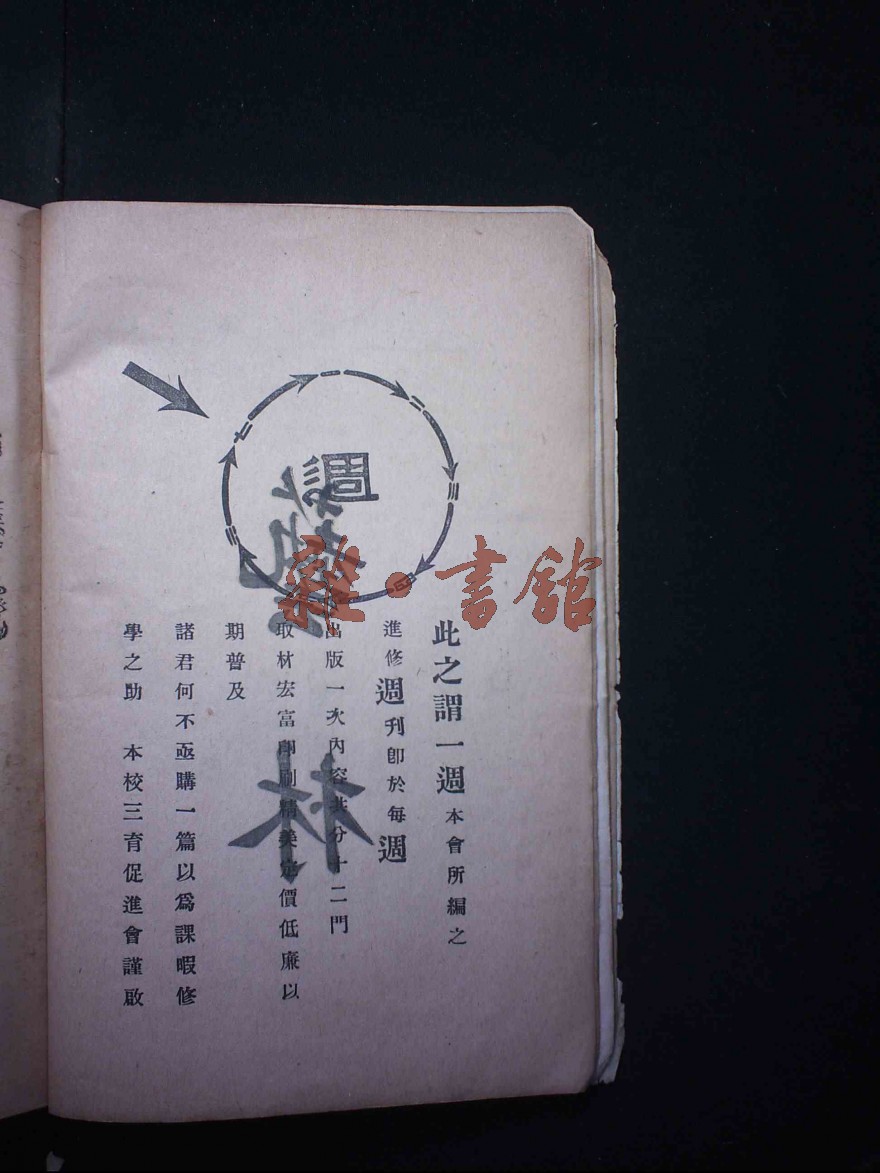 一
二
三
四
七
週
此之謂一週本會所編之
進修週刊即於每週
出版一次內容共分十二門
取材宏富印刷精美定價低廉以
期普及
諸君何不亟購一篇以爲課暇修
學之助　本校三育促進會謹啟
林
雜·書館